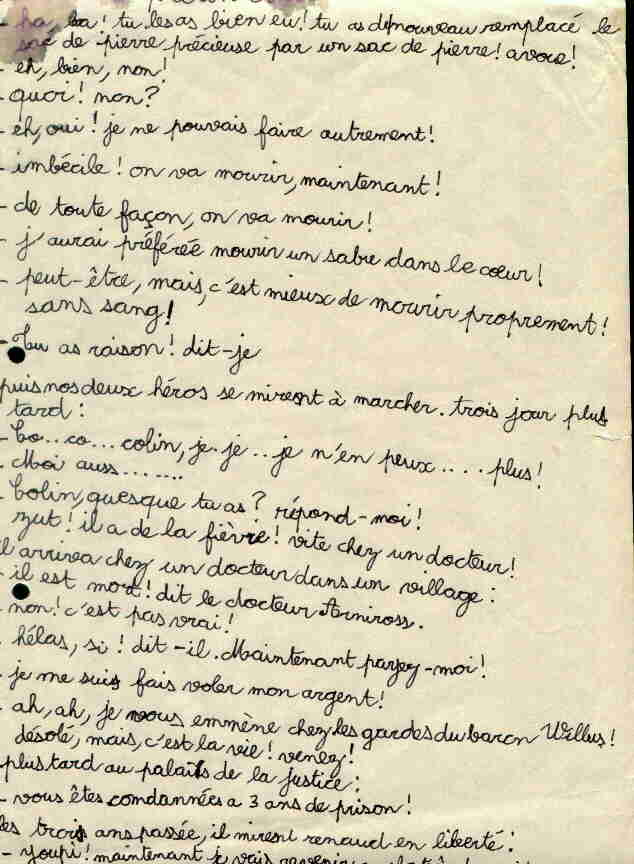 - ha, ha! tu les as bien eu! tu as de nouveau remplacé le
sac de pierre précieuse par un sac de pierre! avoue!
- eh, bien, non!
- quoi! non?
- eh, oui! je ne pouvais faire autrement!
- imbécile! on va mourir, maintenant!
- de toute façon, on va mourir!
- j'aurai préférée mourir un sabre dans le cœur!
- peut-être, mais, c'est mieux de mourir proprement!
sans sang!
- Tu as raison! dit-je
puis nos deux héros se mirent à marcher. trois jour plus
tard:
- Co.. co... colin, je. je.. je n'en peux.... plus!
- Moi auss.......
- Colin, quesque tu as? répond-moi!
zut! il a de la fièvre! vite chez un docteur!
il arriva chez un docteur dans un village:
- il est mort! dit le docteur Arniross.
- non! c'est pas vrai!
- hélas, si! dit-il. Maintenant payez-moi!
- je me suis fais voler mon argent!
- ah, ah, je vous emmène chez les gardes du baron Wellus!
désolé, mais, c'est la vie! venez!
plus tard au palais de la justice:
- vous êtes condannées a 3 ans de prison!
les trois ans passée, il mirent renaud en liberté:
- youpi! maintenant je vais